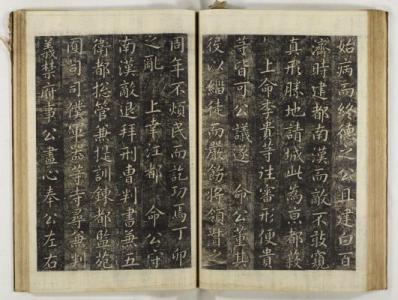 始病而終德之公且建白百
濟時建都南漢而敵不敢窺
真形勝地請城此為京都
上命李貴等往審形便貴
等皆可公議遂 命公董其
役以緇徒而嚴飭將領贊之
周年不煩民而訖功焉丁卯
之亂 上幸江都 命公守
南漢敵退拜刑曹判書兼五
衛都摠管兼提訓鍊都監苑
囿司司僕軍器等寺尋兼判
義禁府事公盡心奉公左右